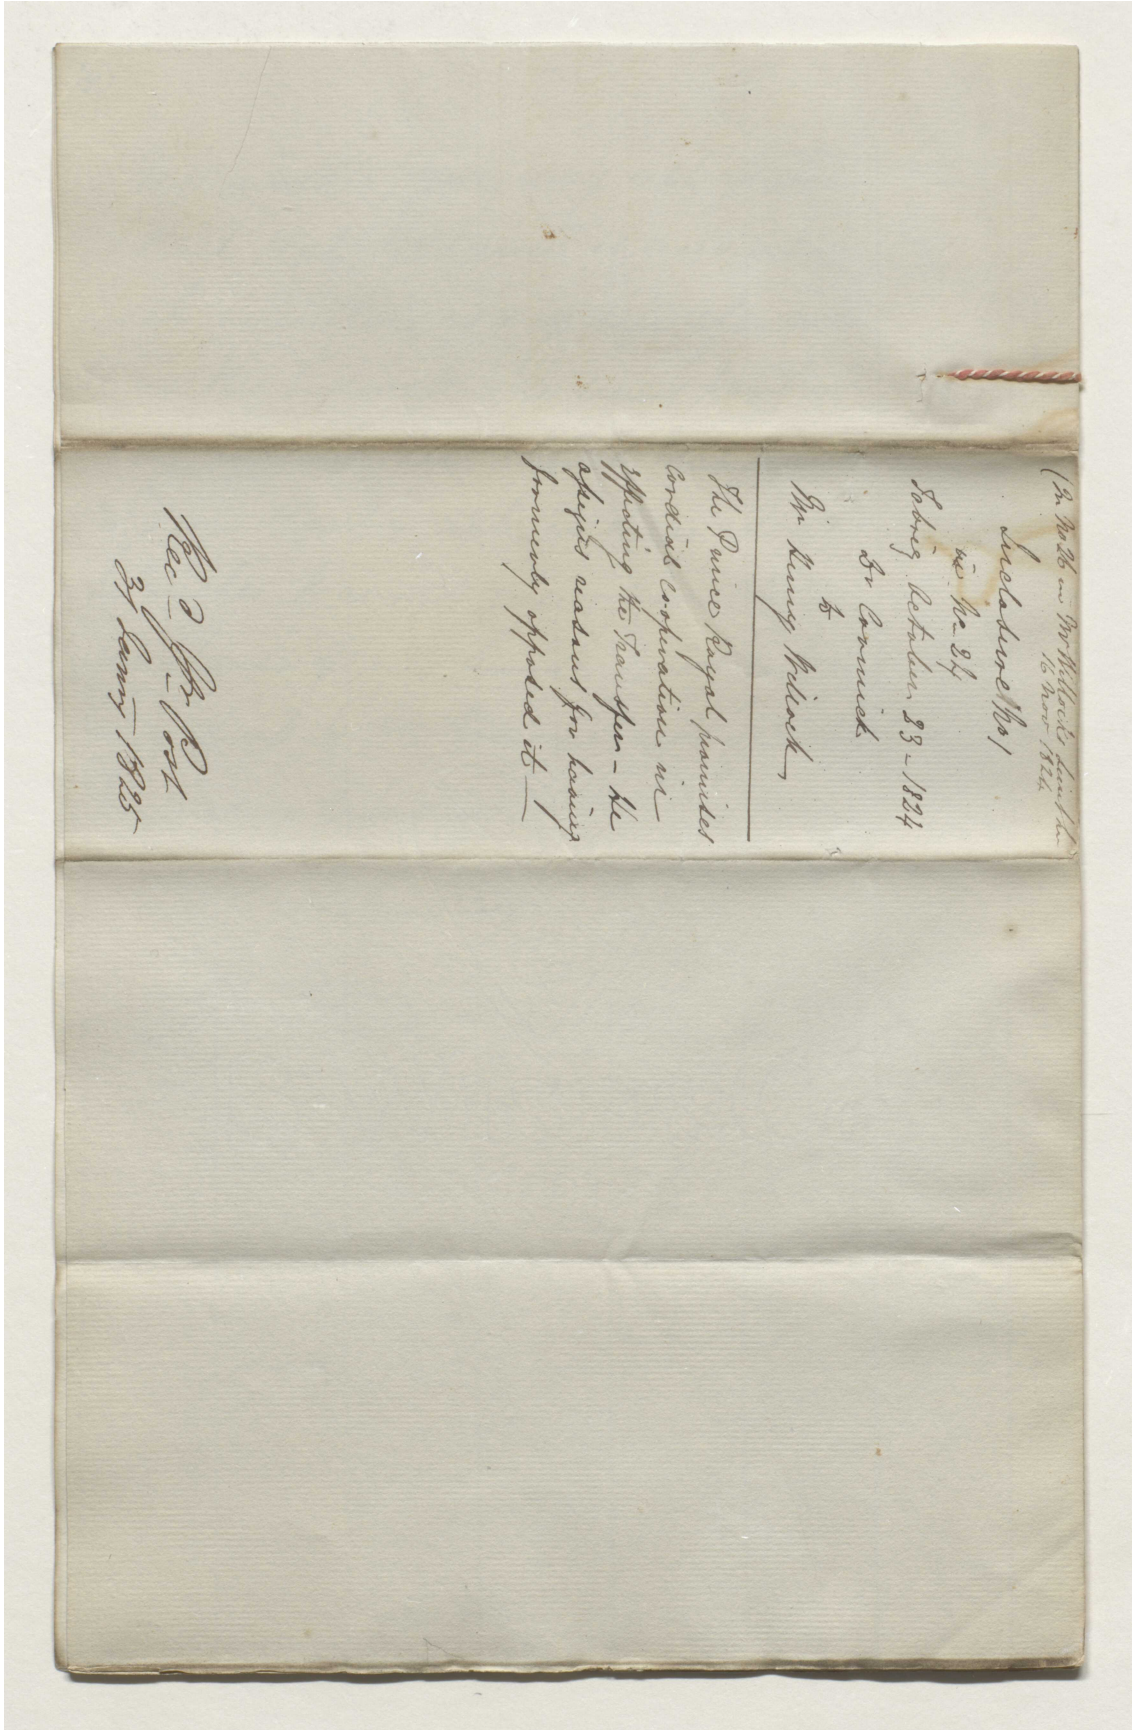 (In No 26 in Mr Willock's
16 Nov 1824
Inclosure No 1
in No 26
Tabriz October 23 - 1824
Dr Cormick
to
Mr Henry Willock,
The Prince Royal promises
Cordial cooperation in
effecting the Transfer - He
assigns reasons for having
formerly opposed it —
Rec d Pr Post
31 Janry 1825